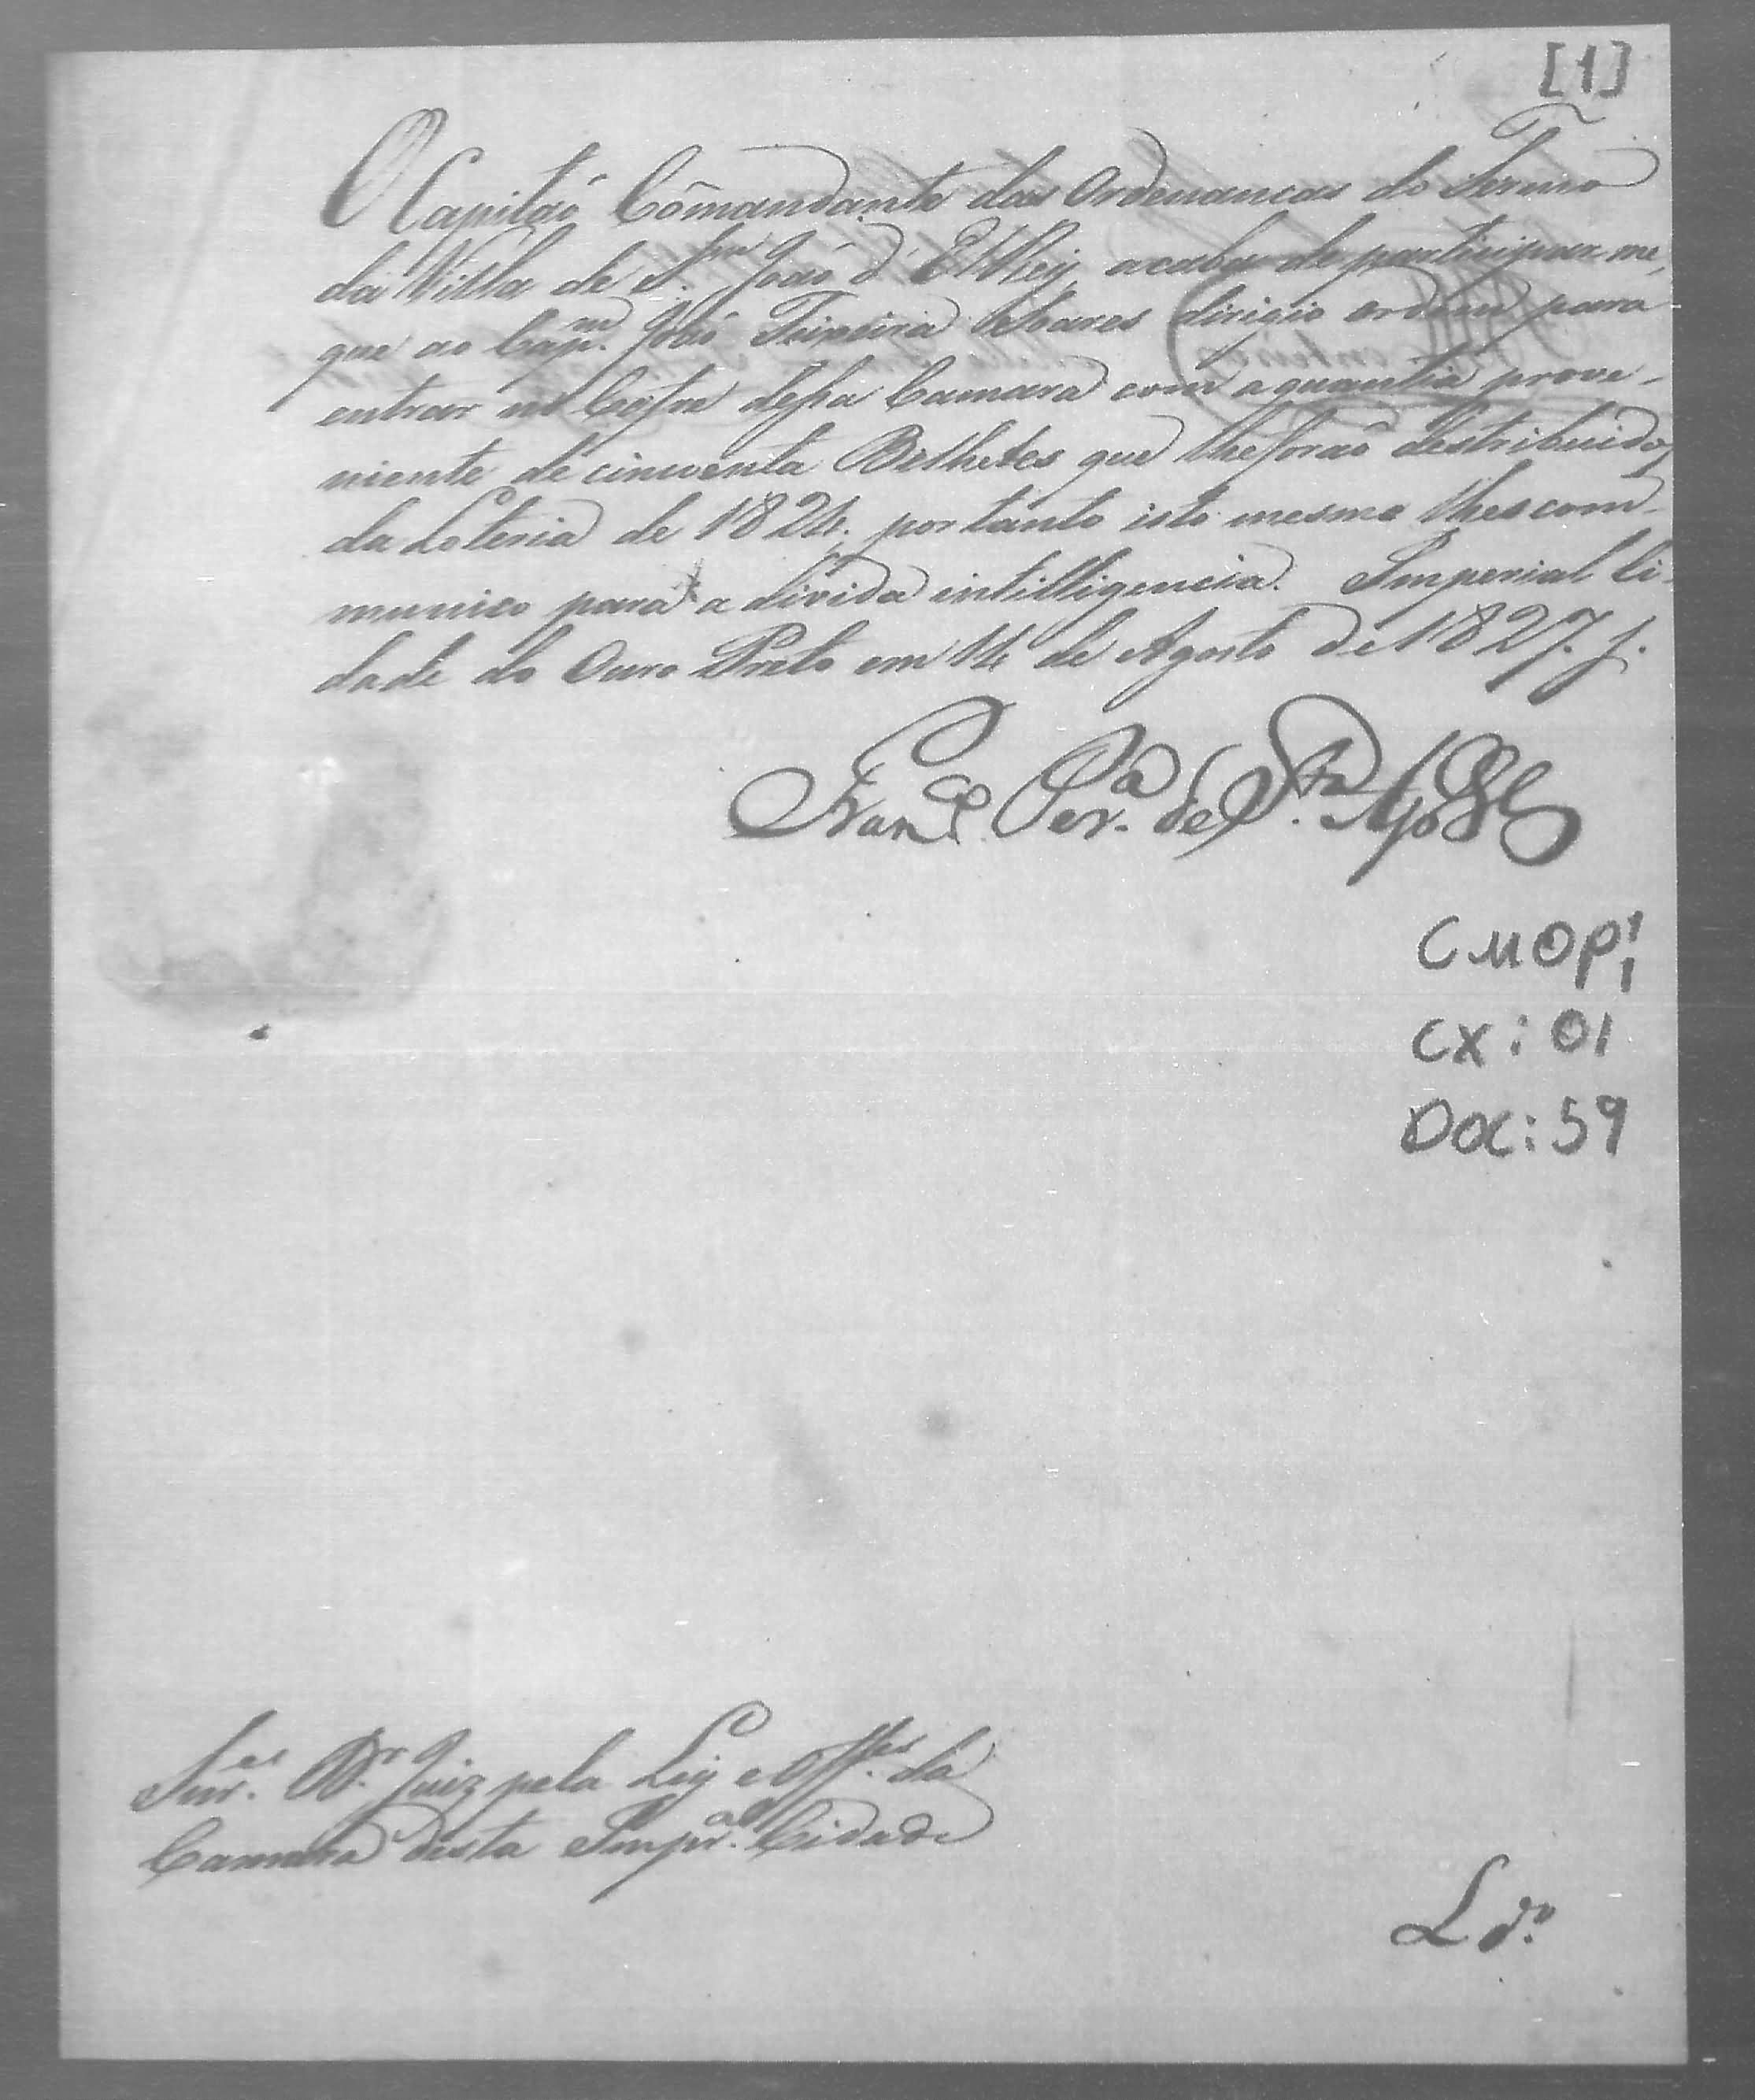 [1]
O Capitaõ Cõmandante das Ordenancas do Termo
da Villa de S. Joaõ d'ElRey acaba de participar-me,
que ao Capm. Joaõ Teixeira dirigio ordem para
entrar no Cofre dessa Camara com a quantia prove-
niente de cincoenta Bilhetes que lhe foraõ destribuidos
da Loteria de 1824, por tanto isto mesmo lhes com-
munico para a divida intilligencia. Imperial Ci-
dade do Ouro Preto em 14 de Agosto de 1827.
Franco. Pera. de Sta. Apolla
CMOP
CX: 01
DOC: 59
Snres. Dr. Juiz pela Ley e Offes. da
Camara desta Imperal. Cidade
Ldo.